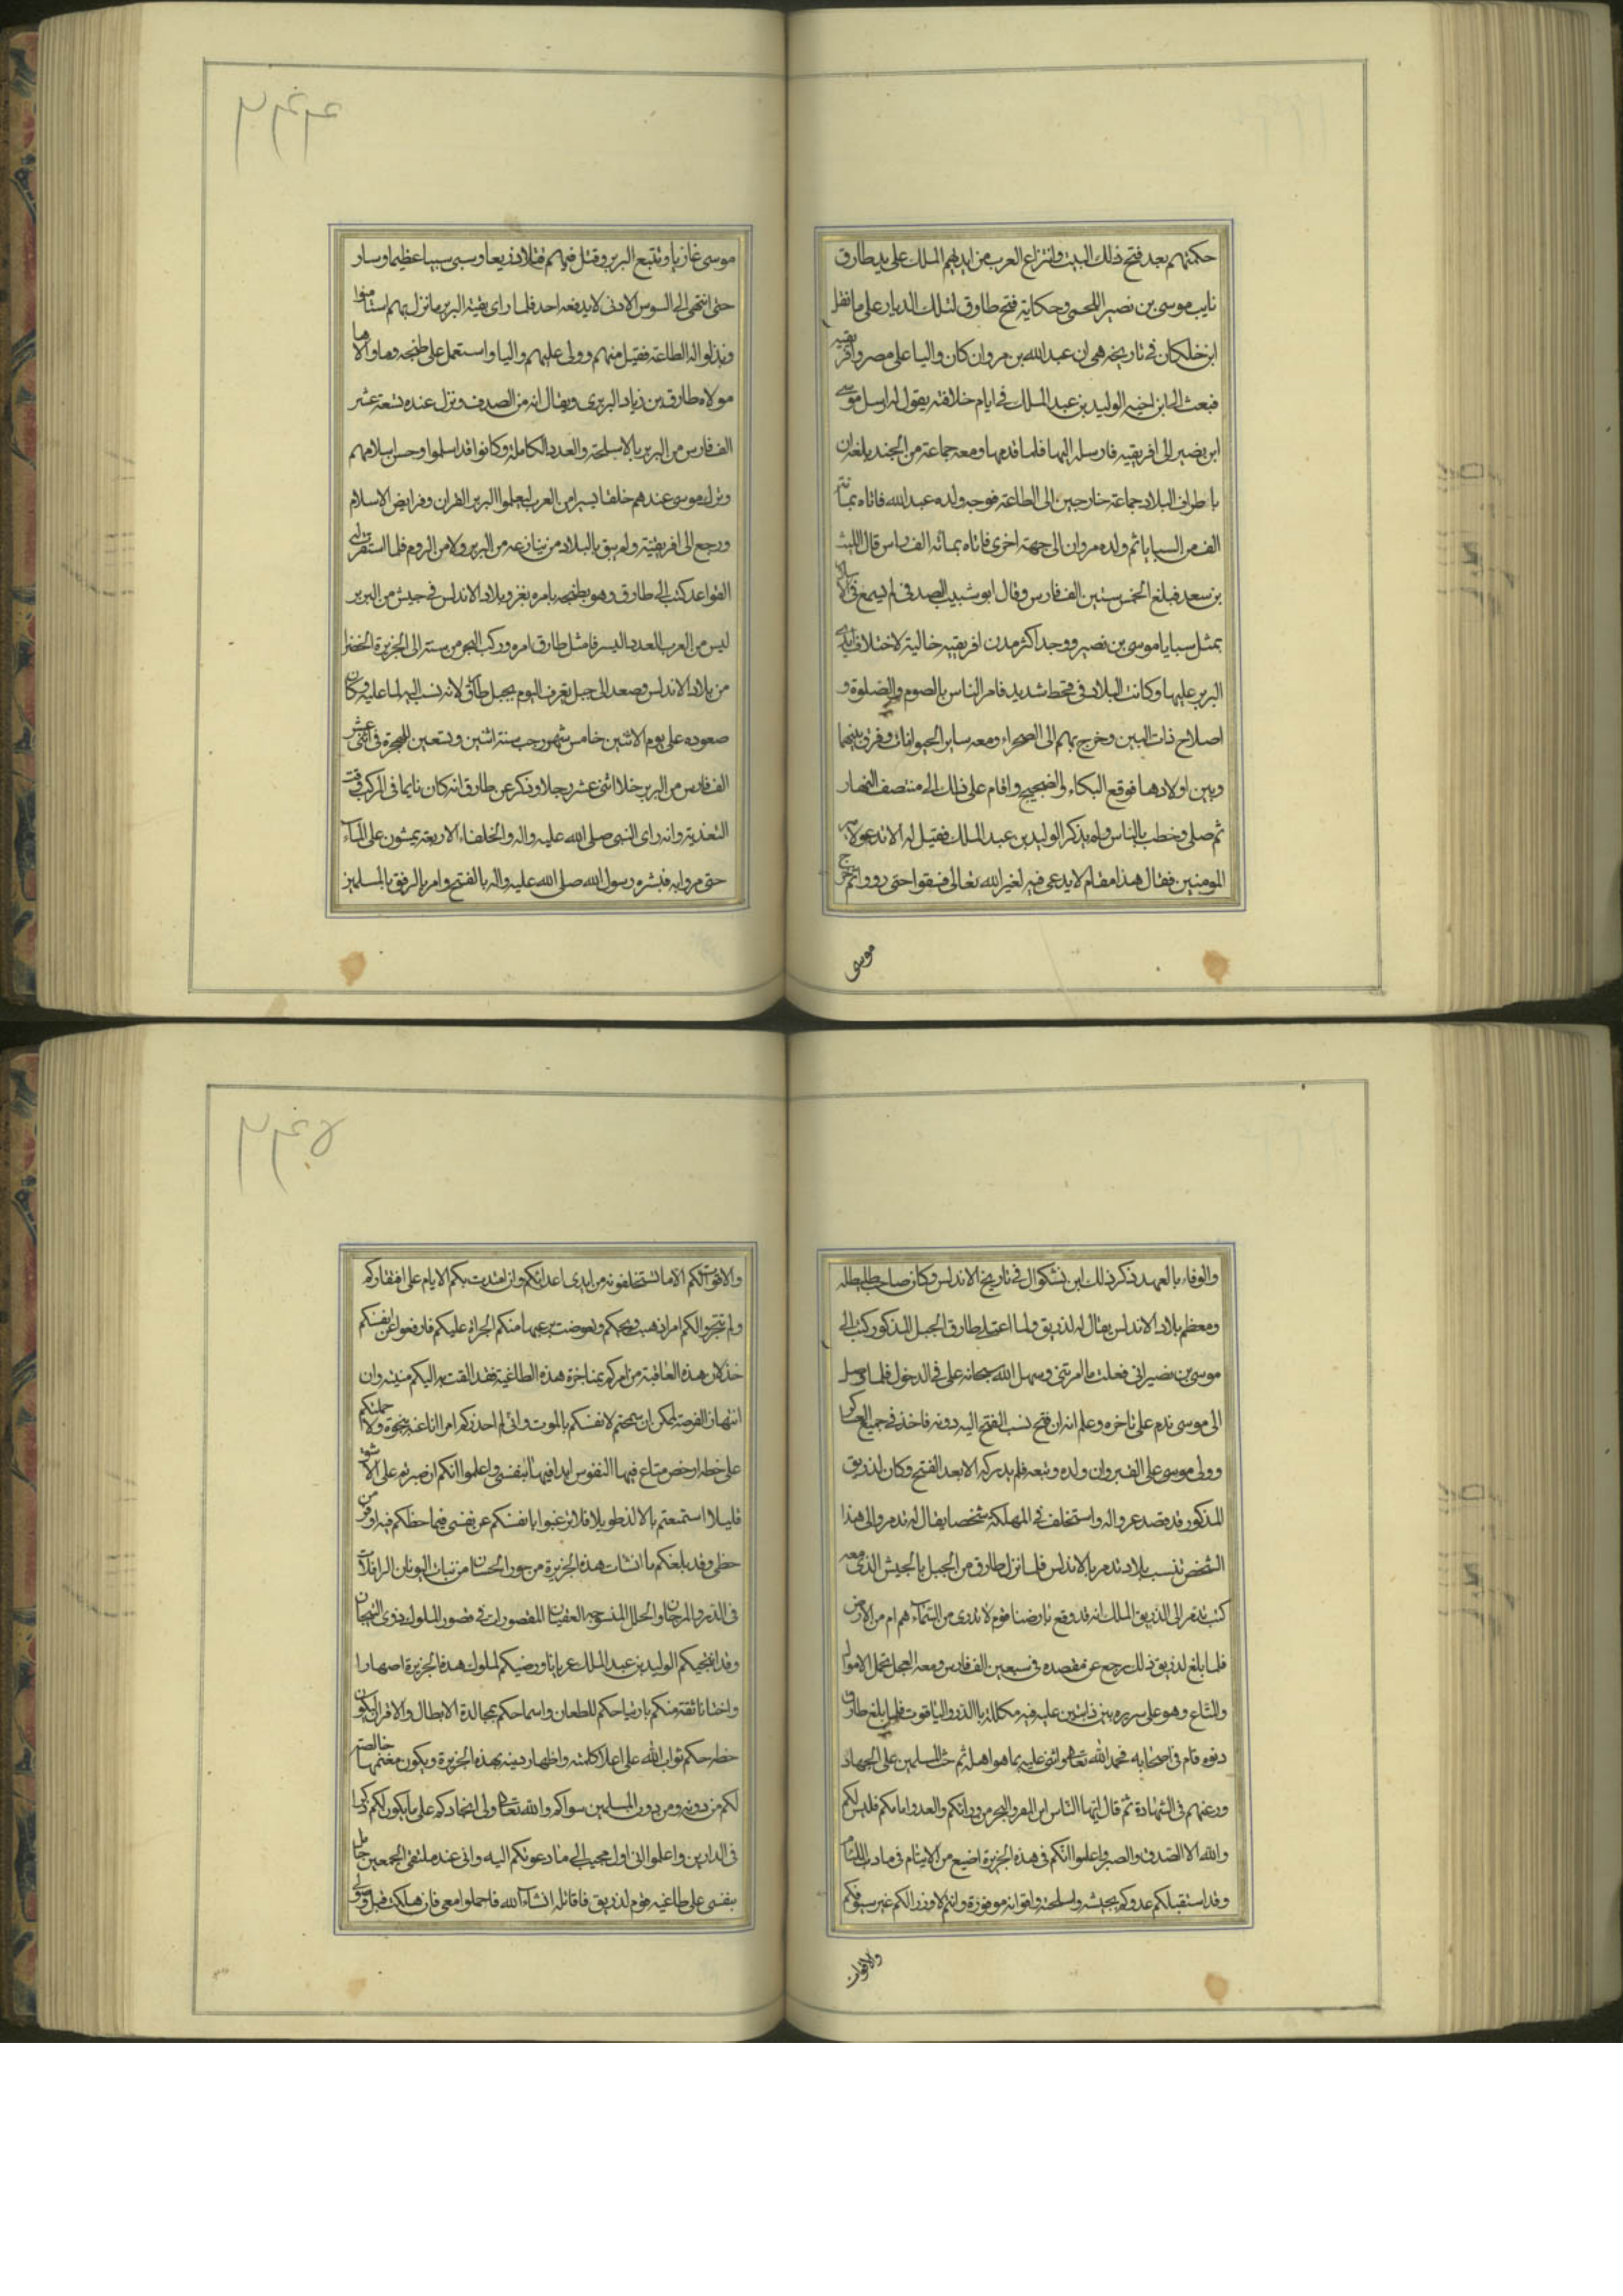 حكمتهم بعد فتح ذلك البيت وانتزاع العرب من ايديهم الملك على يد طارق
نايب موسى بن نصير اللخمى وحكاية فتح طارق لتلك الديار على ما نقل
ابن خلكان فى تاريخه هى ان عبد الله بن مروان كان واليا على مصر وافريقيه
فبعث الى ابن اخيه الوليد بن عبد الملك فى ايام خلافته يقول له ارسل موسى
ابن نصير الى افريقيه فارسله اليها فلما قدمها ومعه جماعة من الجند بلغه ان
باطراف البلاد جماعة خارجين الى الطاعة فوجه ولده عبد الله فاتاه بمائة
الف من السبايا ثم ولده مروان الى جهة اخرى فاتاه بمائة الف راس قال الليث
بن سعد فبلغ الخمس ستين الف فارس وقال ابو شبيب الصدفى لم يسمع فى الاسلام
بمثل سبايا موسى بن نصير ووجد اكثر مدن افريقيه خالية لاختلاف ايدى
البربر عليها وكانت البلاد فى قحط شديد فامر الناس بالصوم والصلوة و
اصلاح ذات البين وخرج بهم الى الصحراء ومعه ساير الحيوانات وفرق بينها
وبين اولادها فوقع البكاء والضجيج واقام على ذلك الى منتصف النهار
ثم صلى وخطب بالناس ولم يذكر الوليد بن عبد الملك فقيل له الا تدعو لامير
المومنين فقال هذا مقام لا يدعى فيه لغير الله تعالى فسقوا حتى رووا ثم خرج
موسى
٣٤٤
موسى غازيا وتتبع البربر وقتل فيهم قتلا ذريعا وسبى سبيا عظيما وسار
حتى انتهى الى السوس الادنى لا يدفعه احد فلما راى بقية البربر ما نزل بهم استامنوا
وبذلوا له الطاعة فقبل منهم وولى عليهم واليا واستعمل على طنجه وما والاها
مولاه طارق بن زياد البربرى ويقال انه من الصدف ونزل عنده تسعة عشر
الف فارس من البربر بالاسلحة والعدد الكاملة وكانوا قد اسلموا وحسن اسلامهم
وترك موسى عندهم خلقا يسيرا من العرب ليعلموا البربر القران وفرايض الاسلام
ورجع الى افريقية ولم يبق بالبلاد من ينازعه من البربر ولا من الروم فلما استقرت له
القواعد كتب الى طارق وهو بطنجه يامره بغزو بلاد الاندلس فى جيش من البربر
ليس من العرب العدد اليسر فامتثل طارق امره وركب البحر من سبته الى الجزيرة الخضرا
من بلاد الاندلس وصعد الى جبل يعرف اليوم بجبل طارق لانه نسب اليه لما عليه وكان
صعوده على يوم الاثنين خامس شهر رجب سنة اثنين وتسعين للهجرة فى اثنى عشر
الف فارس من البربر خلا اثنى عشر رجلا وذكر عن طارق انه كان نايما فى المركب وقت
التعدية وانه راى النبى صلى الله عليه واله والخلفاء الاربعة يمشون على الماء
حتى مروا به فبشره رسول الله صلى الله عليه واله بالفتح وامره بالرفق بالمسلمين
والوفاء بالعهد ذكر ذلك ابن بشكوال فى تاريخ الاندلس وكان صاحب طليطله
ومعظم بلاد الاندلس يقال له لذريق ولما اعتلى طارق الجبل المذكور كتب الى
موسى بن نصير انى فعلت ما امرتنى وسهل الله سبحانه على فى الدخول فلما وصل
الى موسى ندم على تاخره وعلم انه ان فتح نسب الفتح اليه دونه فاخذ فى جميع العساكر
وولى موسى على القيروان ولده وتبعه فلم يدركه الا بعد الفتح وكان لذريق
المذكور قد قصد عدوا له واستخلف فى المملكة شخصا يقال له تدمر والى هذا
الشخص تنسب بلاد تدمر بالاندلس فلما نزل طارق من الجبل بالجيش الذى معه
كتب تدمر الى لذريق الملك انه قد وقع بارضنا قوم لا ندرى من السماء هم ام من الارض
فلما بلغ لذريق ذلك رجع عن مقصده فى سبعين الف فارس ومعه العجل تحمل الاموال
والمتاع وهو على سريره بين دابتين عليه قبه مكللة بالدر والياقوت فلما بلغ طارق
دنوه قام فى اصحابه فحمد الله تعالى واثنى عليه بما هو اهله ثم حث المسلمين على الجهاد
ورغبهم فى الشهادة ثم قال ايها الناس اين المفر والبحر من ورائكم والعدو امامكم فليس لكم
والله الا الصدق والصبر واعلموا انكم فى هذه الجزيرة اضيع من الايتام فى مادب اللئام
وقد استقبلكم عدوكم بجيشه واسلحته واقواته موفورة وانتم لا وزر لكم غير سيوفكم
ولا اقوات
٣٤٥
ولا اقوات لكم الا ما تستخلصونه من ايدى اعدائكم وان امتدت بكم الايام على افتقاركم
ولم تنجزوا لكم امرا ذهب ريحكم وتعوضت من رعبها منكم الجراة عليكم فادفعوا عن انفسكم
خذلان هذه العاقبة من امركم بمناجزة هذه الطاغية فقد القت به اليكم مدينته وان
انتهاز الفرصة لممكن ان سمحتم لانفسكم بالموت وانى لم احذركم امرا انا عنه بنجوة ولا حملتكم
على خطة ارخص متاع فيها النفوس ابدا فيها بنفسى واعلموا انكم ان صبرتم على الاشق
قليلا استمتعتم بالالذ طويلا فلا ترغبوا بانفسكم عن نفسى فيما حظكم فيه اوفر من
حظى وقد بلغكم ما انشات هذه الجزيرة من حور الحسان من بنات اليونان الرافلات
فى الدر والمرجان والحلل المنسوجه العقيان المقصورات فى قصور الملوك ذوى التيجان
وقد انتخبكم الوليد بن عبد الملك عربانا ورضيكم لملوك هذه الجزيرة اصهارا
واختانا ثقة منكم بارتياحكم للطعان واسماحكم بمجالدة الابطال والاقران ليكون
حظه حكم ثواب الله على اعلاء كلمته واظهار دينه بهذه الجزيرة ويكون مغنمها خالصة
لكم من دونه ومن دون المسلمين سواكم والله تعالى ولى انجادكم على ما يكون لكم ذكرا
فى الدارين واعلموا انى اول مجيب الى ما دعوتكم اليه وانى عند ملتقى الجمعين حامل
بنفسى على طاغية قوم لذريق فاقاتله انشاء الله فاحملوا معى فان هلكت قبل وصولى